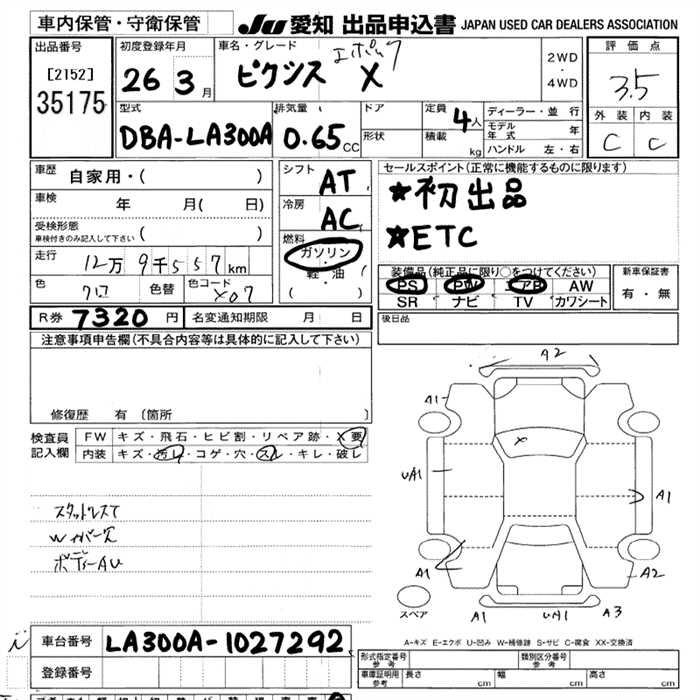 車内保管・守衛保管 JU 愛知 出品申込書 JAPAN USED CAR DEALERS ASSOCIATION
出品番号 初度登録年月 車名・グレード 評価点
[2152] 26 3月 ピクシス エポック X 2WD・4WD 3.5
35175
型式 排気量 ドア 定員 4人 ディーラー・並行 外装 内装
DBA-LA300A 0.65CC 形状 積載 kg モデル年式 年 C C
ハンドル 左・右
車歴 自家用・( ) シフト AT セールスポイント(正常に機能するものに限ります)
車検 年 月( 日) 冷房 AC ★初出品
受検形態 車検付きのみ記入して下さい ( ) 燃料 ★ETC
走行 12万9千557km ガソリン・軽・油 ( ) 装備品(純正品に限り○をつけてください) 新車保証書
色 クロ 色替 色コード X07 PS PW エアB AW 有・無
SR ナビ TV カワシート
R券 7320円 名変通知期限 月 日 後日品
注意事項申告欄(不具合内容等は具体的に記入して下さい)
修復歴 有 〔箇所 〕
検査員記入欄 FW キズ・飛石・ヒビ割・リペア跡・X要
内装 キズ・汚レ・コゲ・穴・スレ・キレ・破レ
A2
A1
X
UA1 A1
A1 A2
スペア A1 UA1 A3
A-キズ E-エクボ U-凹み W-補修跡 S-サビ C-腐食 XX-交換済
車台番号 LA300A-1027292
登録番号
形式指定番号 参考 類別区分番号 参考
車庫証明用 参考 長さ cm 幅 cm 高さ cm